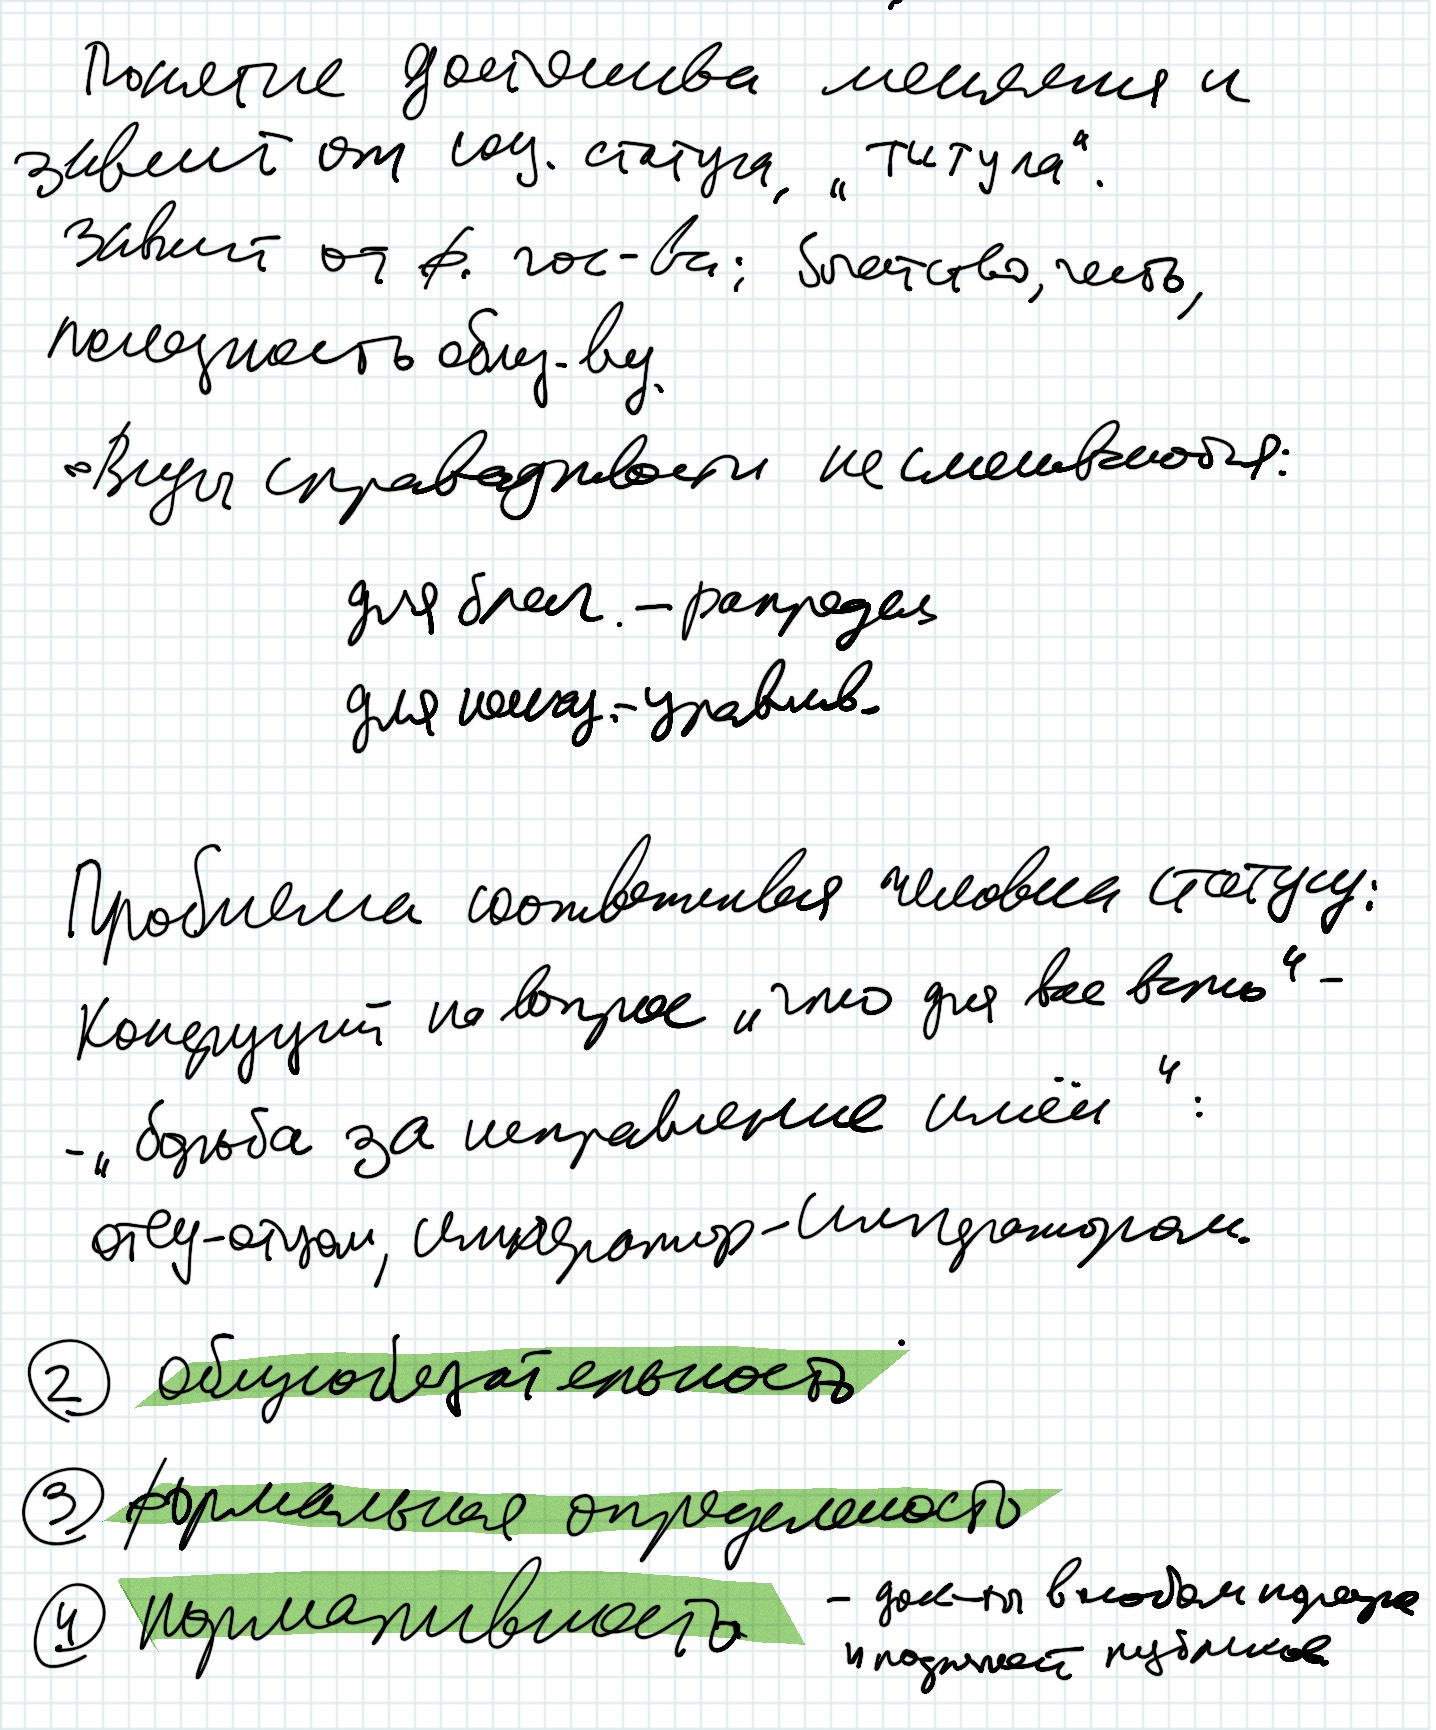 Понятие достоинства меняется и
зависит от соц. статуса, „титула“.
Зависит от ф. гос-ва; богатство, честь,
полезность общ-ву.
Виды справедливости не смешиваются:
для благ. – распредел
для наказ. – уравнив.
Проблема соответствия человека статусу:
Конфуций на вопрос „что для вас власть“ –
- „борьба за исправление имён“:
отец-отцом, император-императором.
② общеобязательность
③ формальная определенность
④ нормативность
– док-ты в особом порядке
и подлежат публиков.